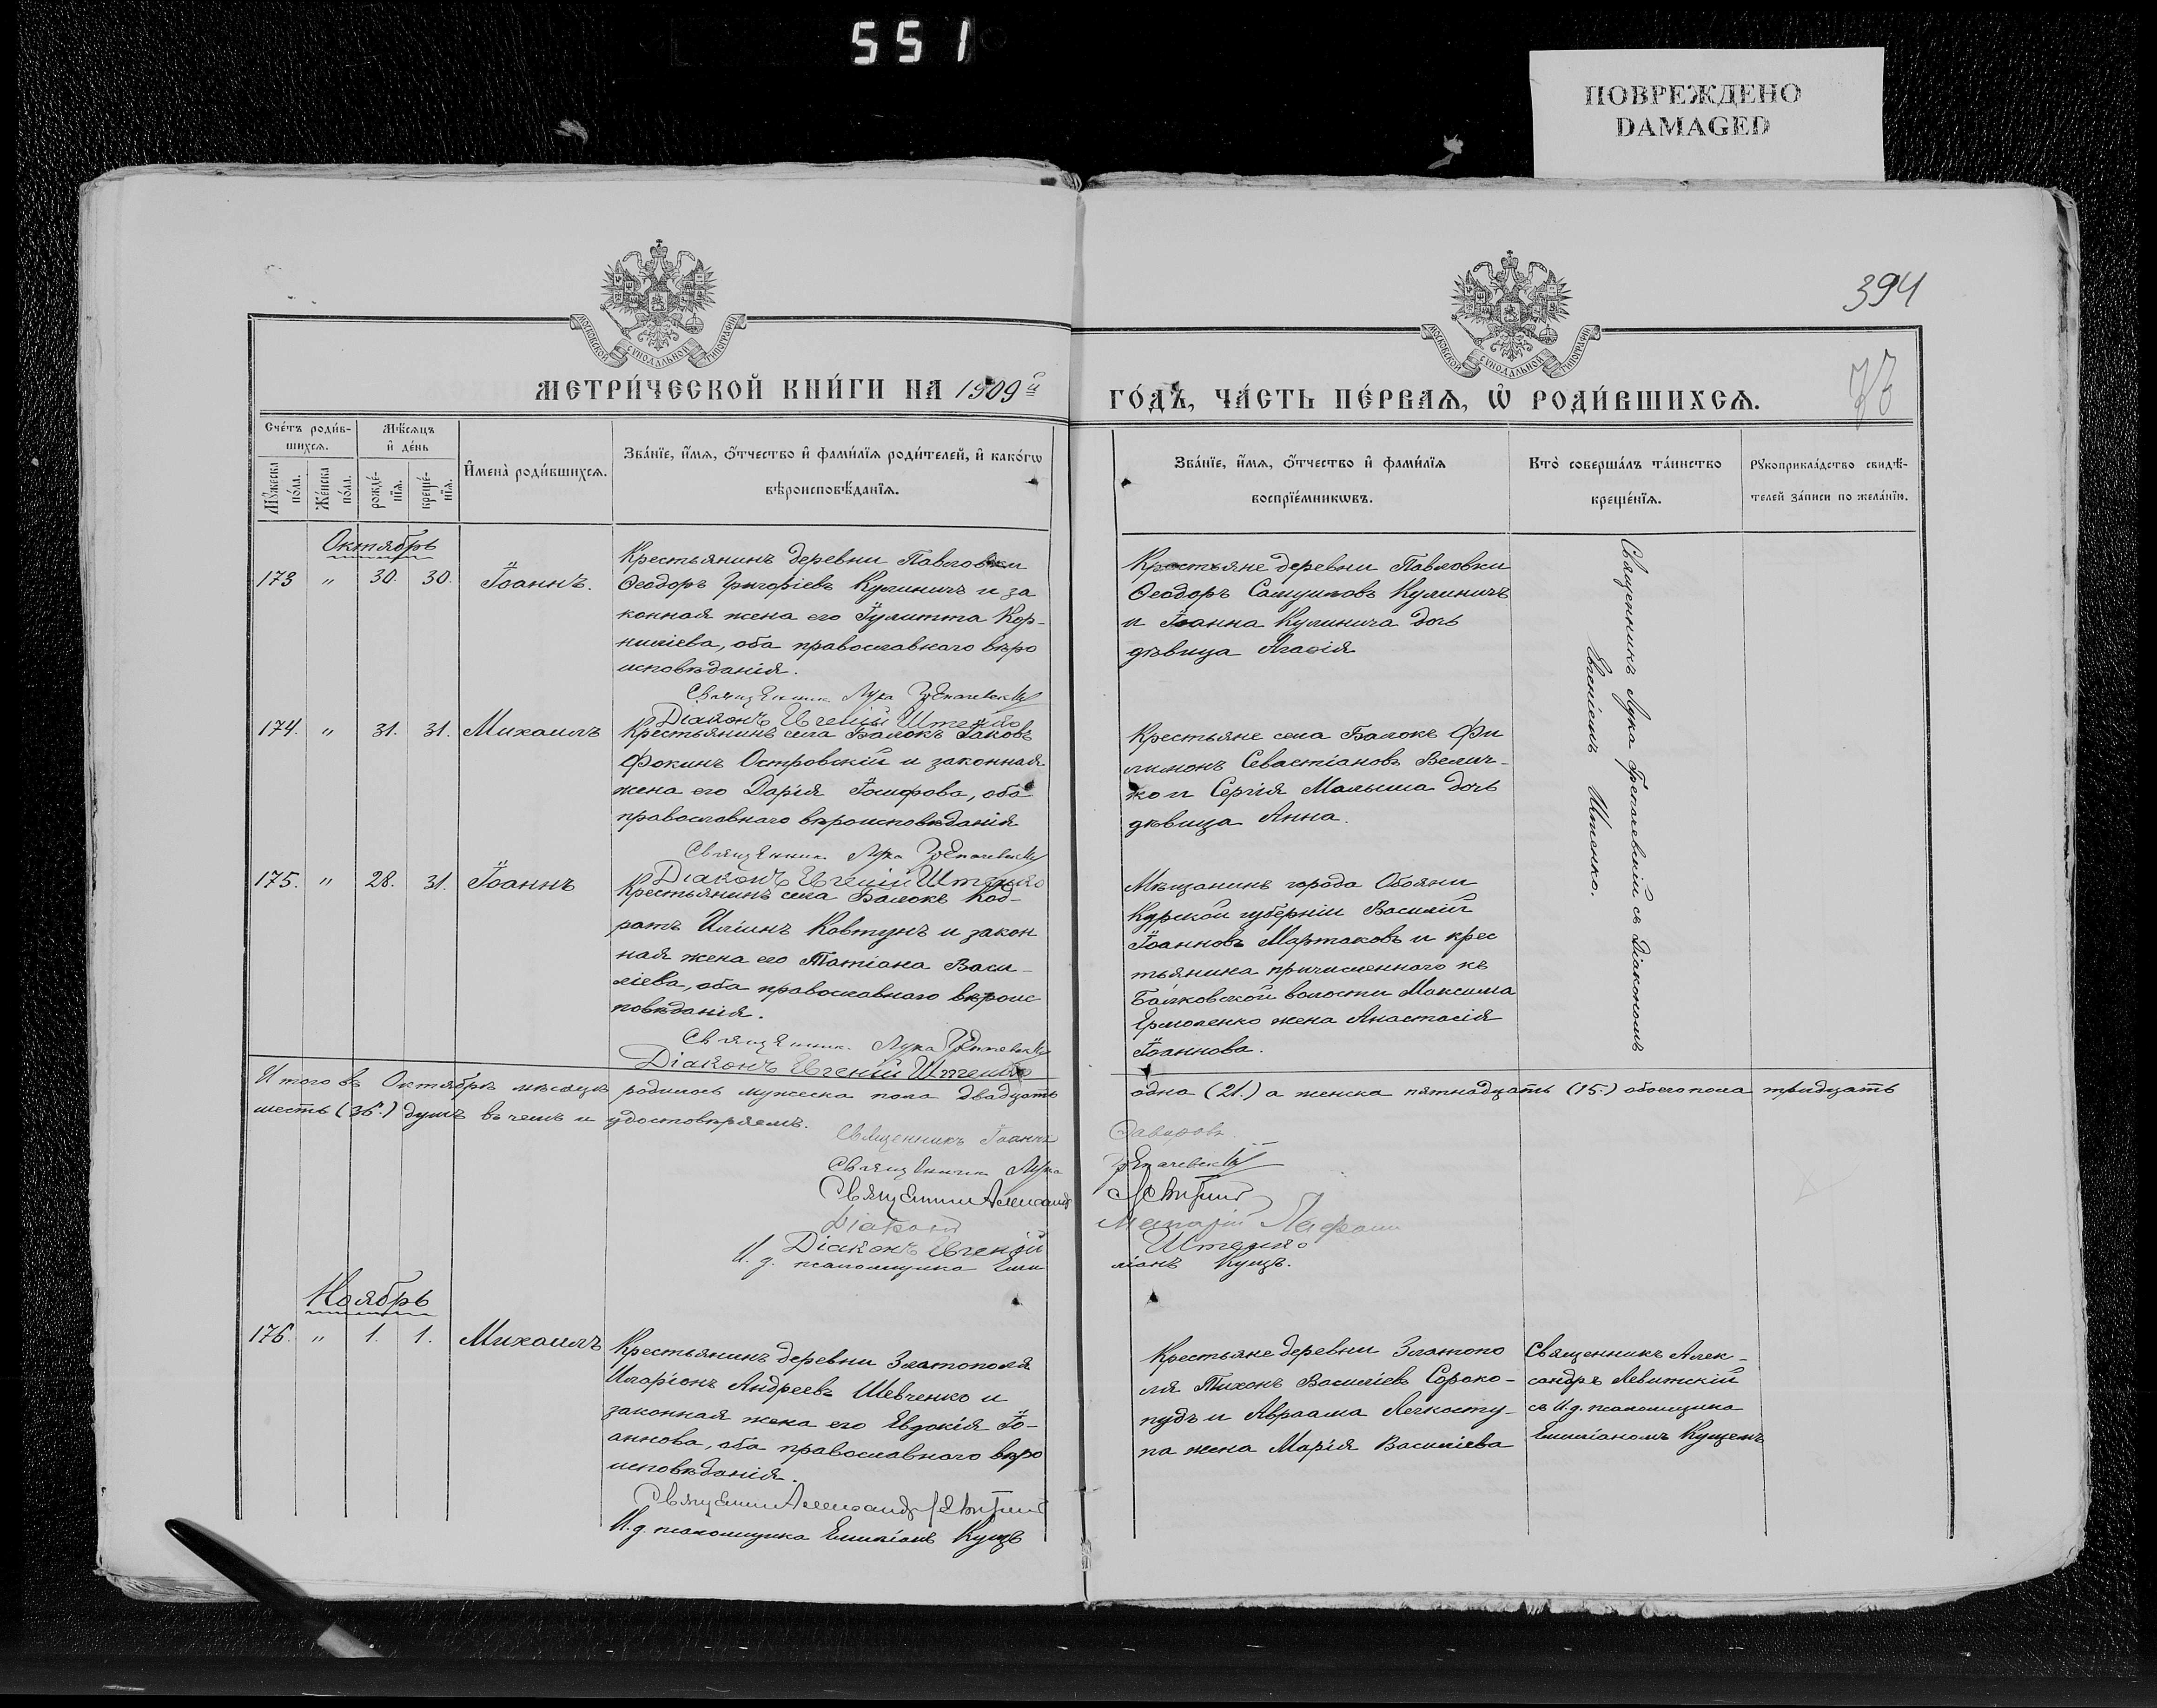 551
ПОВРЕЖДЕНО
DAMAGED
394
МОСКОВСКОЙ СѴНОДАЛЬНОЙ ТИПОГРАФІИ
МОСКОВСКОЙ СѴНОДАЛЬНОЙ ТИПОГРАФІИ
МЕТРИ́ЧЕСКОЙ КНИ́ГИ НА 1909й
ГО́ДЪ, ЧА́СТЬ ПЕ́РВАЯ, Ѽ РОДИ́ВШИХСЯ.
Сче́тъ роди́в-
шихся.
Мѣ́сяцъ
и҆ де́нь
Мꙋ́жеска по́ла.
Же́нска по́ла.
рожде́-нїѧ.
креще́-нїѧ.
И҆мена̀ роди́вшихсѧ.
Зва́нїе, и҆́мѧ, ѻ҆́тчество и҆ фами́лїѧ роди́телей, и҆ како́гѡ
вѣроисповѣ́данїѧ.
Зва́нїе, и҆́мѧ, ѻ҆́тчество и҆ фами́лїѧ
воспрїе́мникѡвъ.
Кто̀ соверша́лъ та́инство
креще́нїѧ.
Рꙋкоприкла́дство свидѣ́-
телей за́писи по жела́нїю.
Октябрь
173 " 30. 30. Іоаннъ.
Крестьянинъ деревни Павловки
Ѳеодоръ Григоріевъ Кулиничъ и за
конная жена его Іулитта Кор-
ниліева, оба православнаго вѣро
исповѣданія.
Священникъ Лука
Діаконъ Евгеній Штенко
Крестьяне деревни Павловки
Ѳеодоръ Самуиловъ Кулиничъ
и Іоанна Кулинича дочь
дѣвица Агаѳія
Священникъ Лука Гречачевскій съ Діакономъ
Евгеніемъ Штенко.
174. " 31. 31. Михаилъ
Крестьянинъ села Балокъ Іаковъ
Фокинъ Островскій и законная
жена его Дарія Іосифова, оба
православнаго вѣроисповѣданія
Священникъ Лука
Діаконъ Евгеній Штенко
Крестьяне села Балокъ Фи
лимонъ Севастіановъ Велич-
ко и Сергія Малыша дочь
дѣвица Анна.
175. " 28. 31. Іоаннъ
Крестьянинъ села Балокъ Код-
ратъ Иліинъ Ковтунъ и закон
ная жена его Татіана Васи-
ліева, оба православнаго вѣроис
повѣданія.
Священникъ Лука
Діаконъ Евгеній Штенко
Мѣщанинъ города Обояни
Курской губерніи Василій
Іоанновъ Мартаковъ и крес
тьянина причисленнаго къ
Балковской волости Максима
Ермоленко жена Анастасія
Іоаннова.
Итого въ Октябрѣ мѣсяцѣ родилось мужеска пола двадцать одна (21.) а женска пятнадцать (15.) обоего пола тридцать
шесть (36.) душъ въ чемъ и удостовѣряемъ.
Священникъ Іоаннъ
Священникъ Лука
Священникъ Александръ Левитскій
Діаконъ
Діаконъ Евгеній Штенко
И. д. псаломщика Еми ліанъ Кущъ.
Ноябрь
176. " 1. 1. Михаилъ
Крестьянинъ деревни Златополя
Иларіонъ Андреевъ Шевченко и
законная жена его Евдокія Іо-
аннова, оба православнаго вѣро
исповѣданія.
Священникъ Александръ Левитскій
И. д. псаломщика Емиліанъ Кущъ
Крестьяне деревни Златопо
ля Тихонъ Василіевъ Сороко-
пудъ и Авраама Легкосту-
па жена Марія Василіева
Священникъ Алек-
сандръ Левитскій
съ И. д. псаломщика
Емиліаномъ Кущемъ